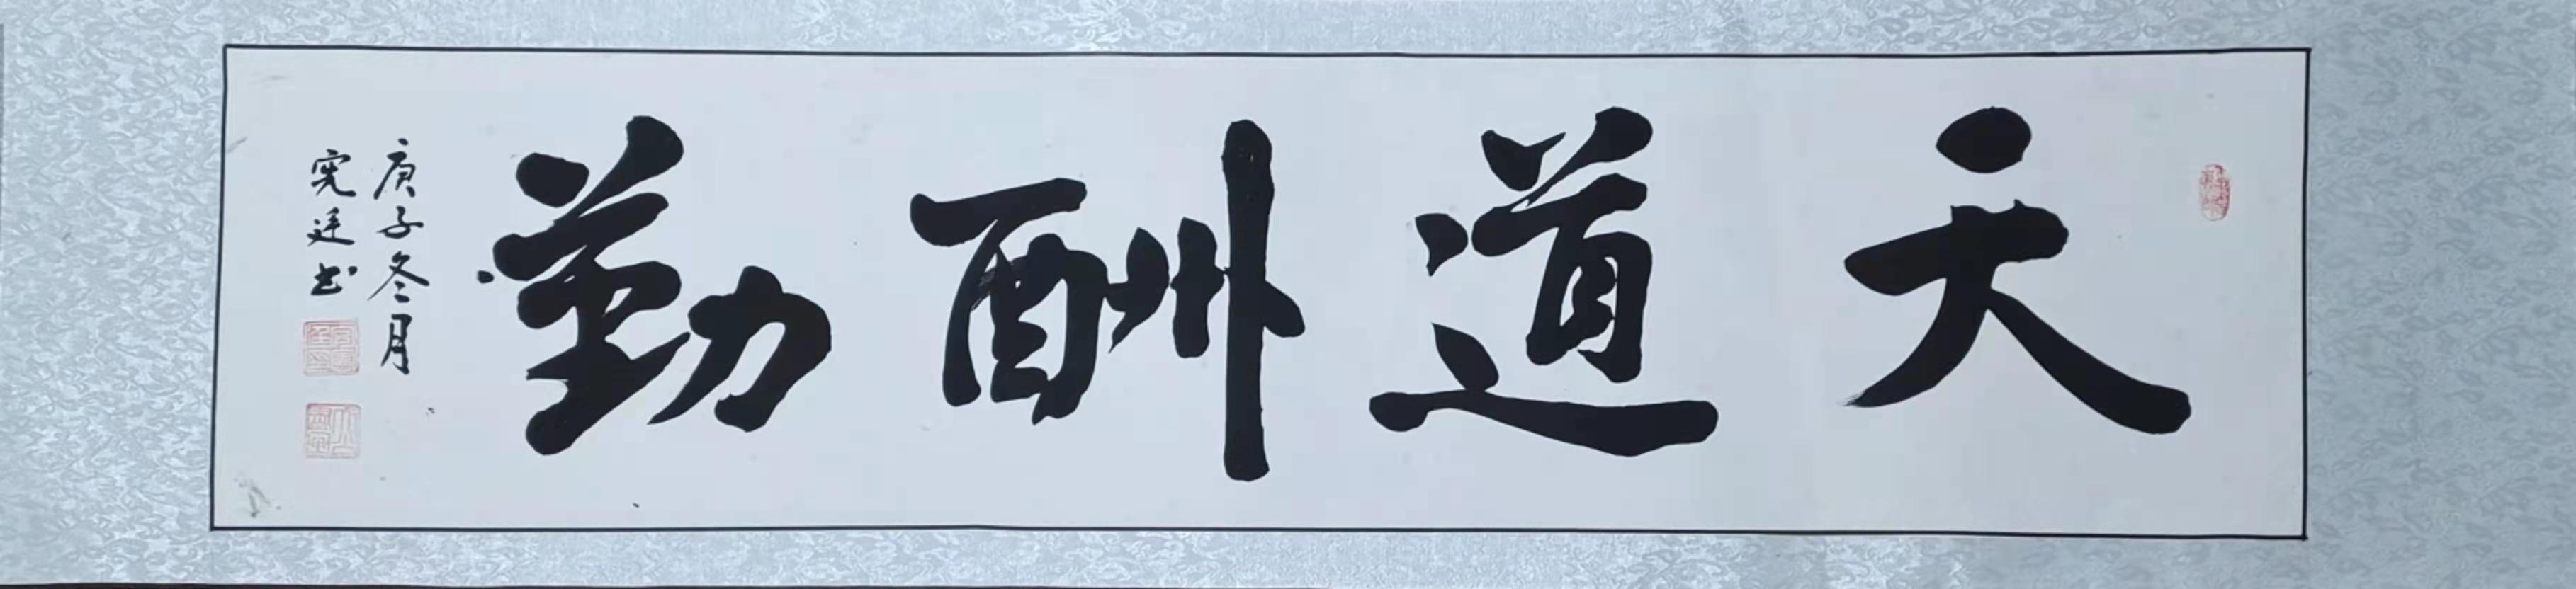 天道酬勤
庚子冬月
宪廷书